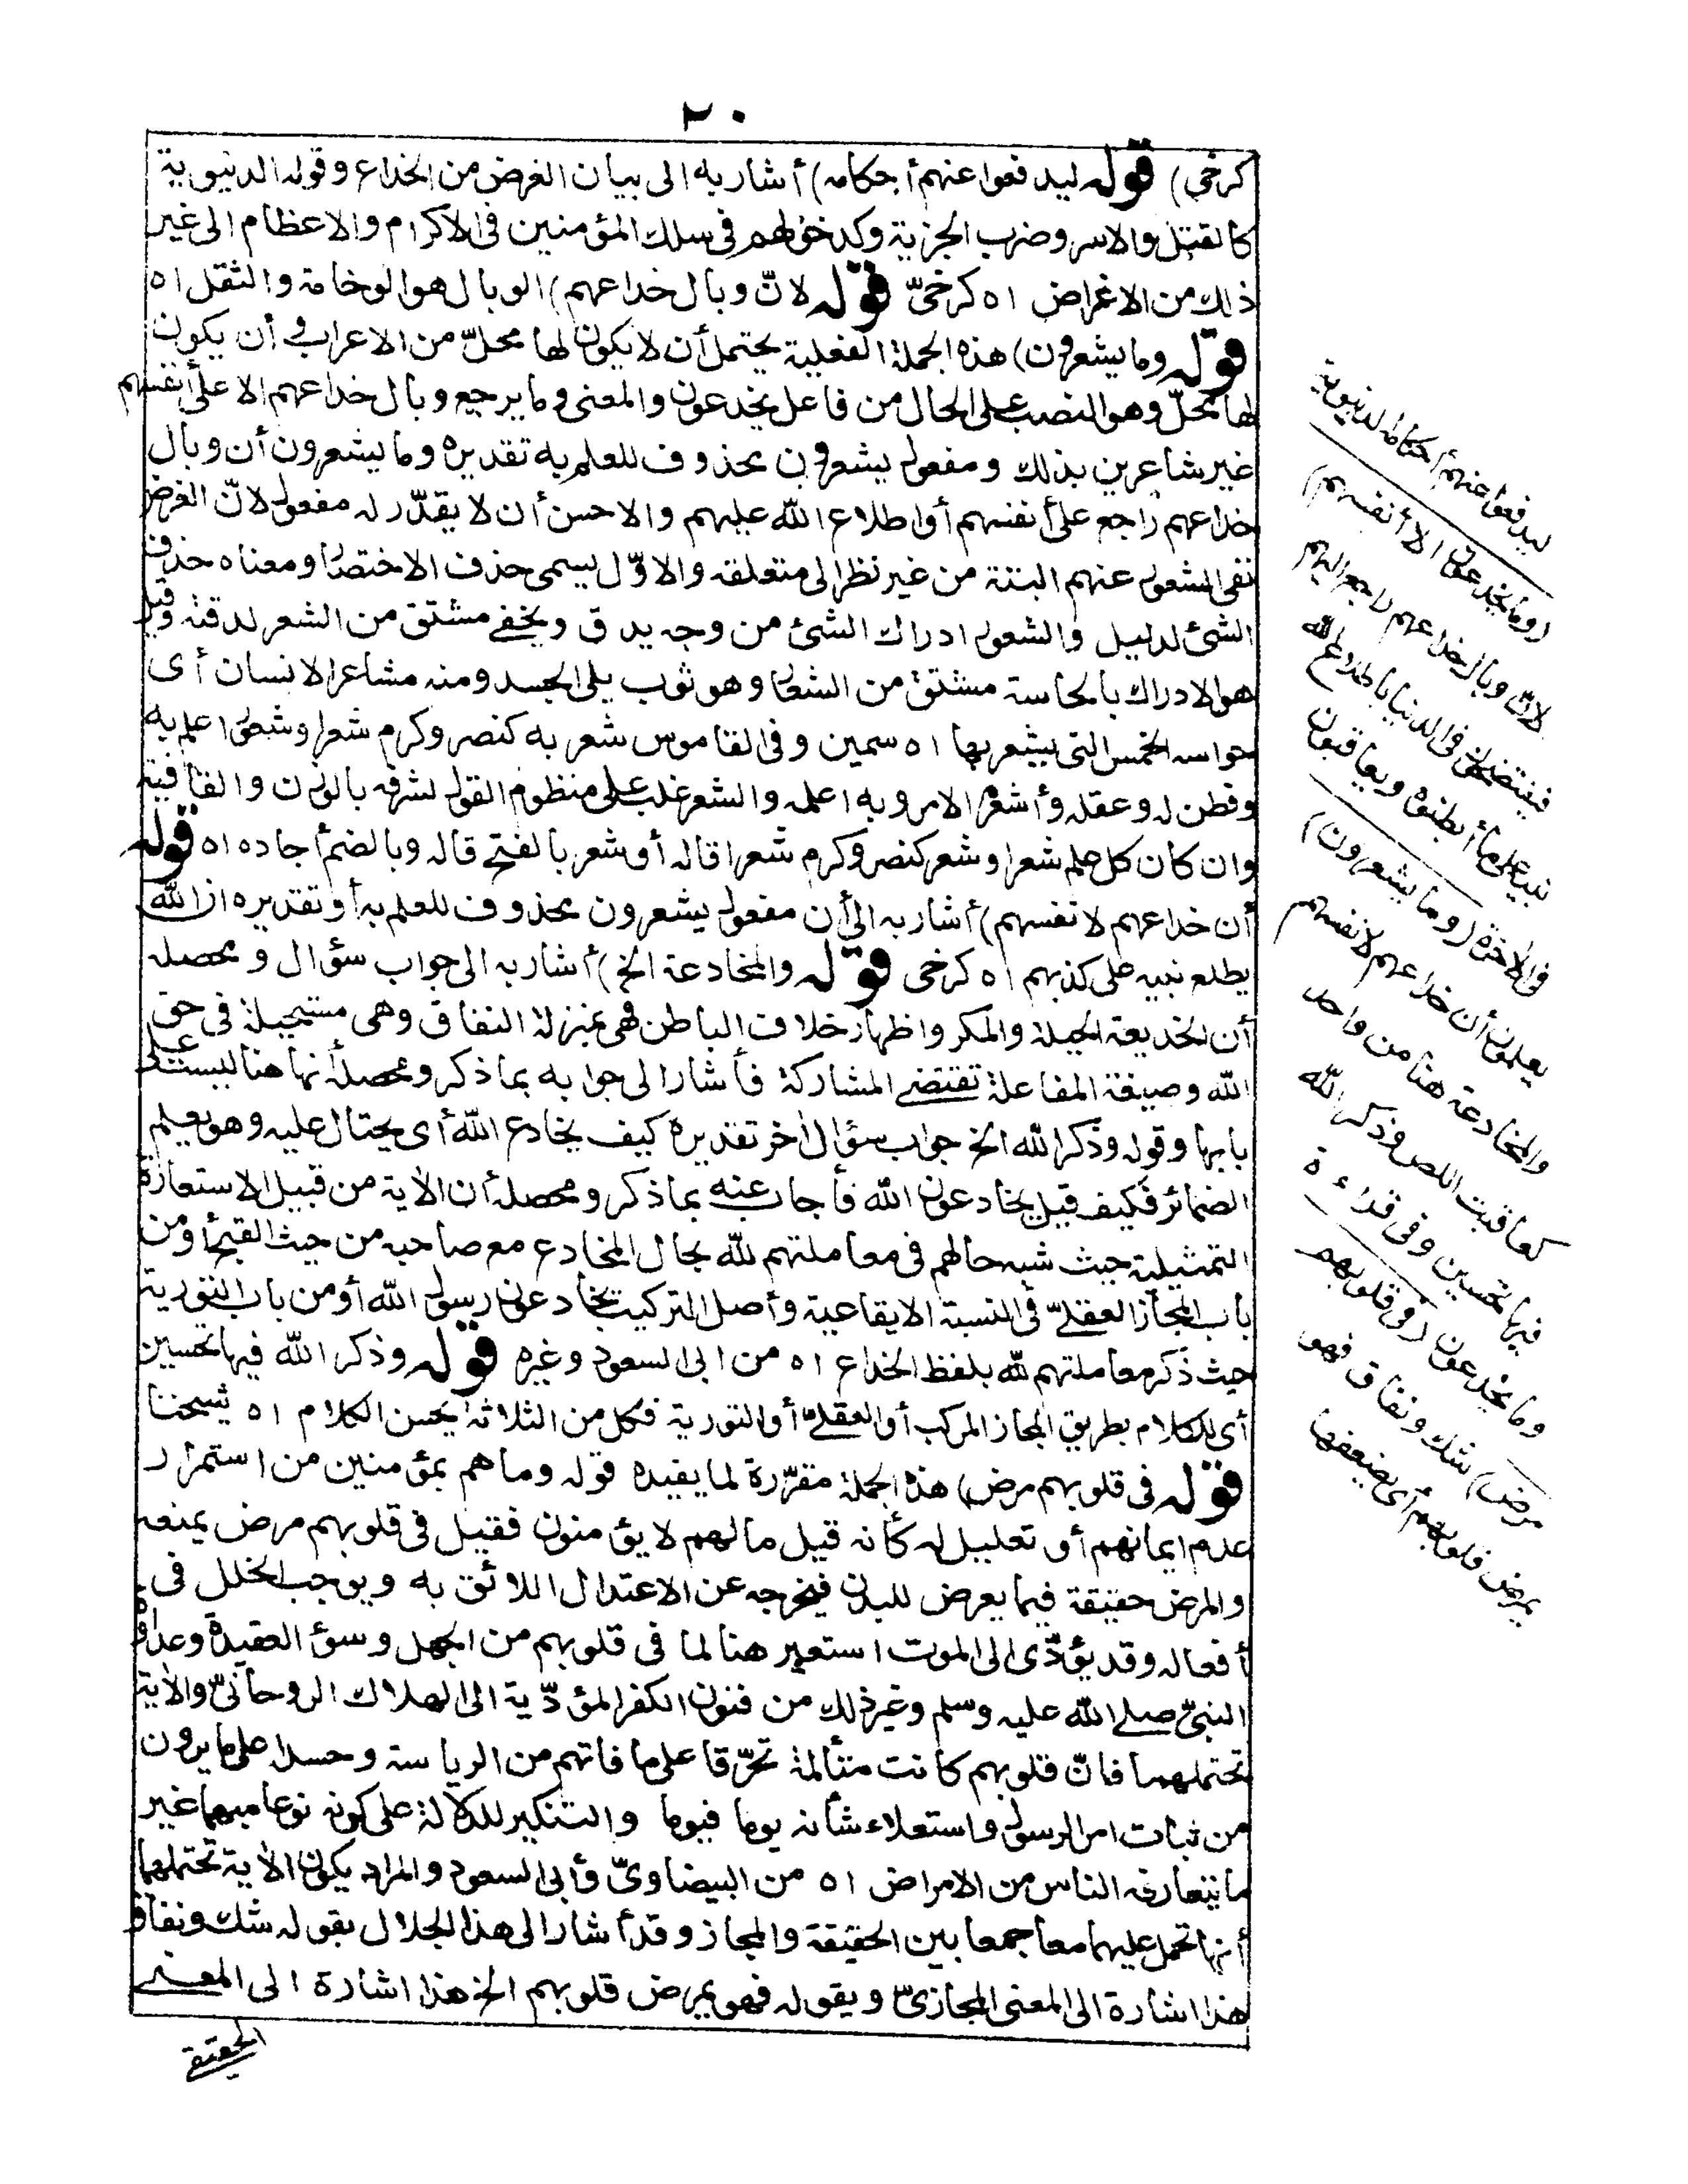 ٢٠
كرخي) قوله ليدفعوا عنهم أحكامه) أشار به الى بيان الغرض من الخداع وقوله الدنيوية
كالقتل والاسر وضرب الجزية وكدخولهم في سلك المؤمنين في الاكرام والاعظام الى غير
ذلك من الاغراض اه كرخيّ قوله لانّ وبال خداعهم) الوبال هو الوخامة والثقل اه
قوله وما يشعرون) هذه الجملة الفعلية يحتمل أن لا يكون لها محلّ من الاعراب وأن يكون
لها محلّ وهو النصب على الحال من فاعل يخدعون والمعنى وما يرجع وبال خداعهم الا على أنفسهم
غير شاعرين بذلك ومفعول يشعرون محذوف للعلم به تقديره وما يشعرون أن وبال
خداعهم راجع على أنفسهم أو اطلاع الله عليهم والاحسن أن لا يقدّر له مفعول لانّ الغرض
نفي الشعور عنهم البتة من غير نظر الى متعلقه والاوّل يسمى حذف الاختصار ومعناه حذف
الشئ لدليل والشعور ادراك الشئ من وجه يدق ويخفى مشتق من الشعر لدقته وقيل
هو الادراك بالحاسة مشتق من الشعار وهو ثوب يلي الجسد ومنه مشاعر الانسان أى
حواسه الخمس التي يشعر بها اه سمين وفي القاموس شعر به كنصر وكرم شعرا وشعورا علم به
وفطن له وعقله وأشعره الامر وبه اعلمه والشعر غلب على منظوم القول لشرفه بالوزن والقافية
وان كان كل علم شعرا وشعر كنصر وكرم شعرا قاله أو شعر بالفتح قاله وبالضم أجاده اه قوله
أن خداعهم لانفسهم) أشار به الى أن مفعول يشعرون محذوف للعلم به أو تقديره ان الله
يطلع نبيه على كذبهم اه كرخى قوله والمخادعة الخ) أشار به الى جواب سؤال ومحصله
أن الخديعة الحيلة والمكر واظهار خلاف الباطن فهي بمنزلة النفاق وهي مستحيلة في حق
الله وصيغة المفاعلة تقتضي المشاركة فأشار الى جوابه بما ذكر ومحصله أنها هنا ليست على
بابها وقوله وذكر الله الخ جواب سؤال اٰخر تقديره كيف يخادع الله أى يحتال عليه وهو يعلم
الضمائر فكيف قيل يخادعون الله فأجاب عنه بما ذكر ومحصله أن الاٰية من قبيل الاستعارة
التمثيلية حيث شبه حالهم في معاملتهم لله بحال المخادع مع صاحبه من حيث القبح أو من
باب المجاز العقليّ في النسبة الايقاعية وأصل التركيب يخادعون رسول الله أو من باب التورية
حيث ذكر معاملتهم لله بلفظ الخداع اه من ابى السعود وغيره قوله وذكر الله فيها تحسين
أى للكلام بطريق المجاز المركب أو العقليّ أو التورية فكل من الثلاثة يحسن الكلام اه شيخنا
قوله في قلوبهم مرض) هذه الجملة مقرّرة لما يفيده قوله وما هم بمؤمنين من استمرار
عدم ايمانهم أو تعليل له كأنه قيل ما لهم لا يؤمنون فقيل في قلوبهم مرض يمنعه
والمرض حقيقة فيما يعرض للبدن فيخرجه عن الاعتدال اللائق به ويوجب الخلل في
أفعاله وقد يؤدّى الى الموت استعير هنا لما في قلوبهم من الجهل وسوء العقيدة وعداوة
النبيّ صلى الله عليه وسلم وغير ذلك من فنون الكفر المؤدّية الى الهلاك الروحانيّ والاٰية
تحتملهما فانّ قلوبهم كانت متألمة تحرّقا على ما فاتهم من الرياسة وحسدا على ما يرون
من ثبات امر الرسول واستعلاء شأنه يوما فيوما والتنكير للدلالة على كونه نوعا مبهما غير
ما يتعارفه الناس من الامراض اه من البيضاويّ وأبي السعود والمراد بكون الاٰية تحتملهما
أنها تحمل عليهما معا جمعا بين الحقيقة والمجاز وقد أشار الى هذا الجلال بقوله شك ونفاق
هذا اشارة الى المعنى المجازيّ وبقوله فهو يمرض قلوبهم الخ هذا اشارة الى المعنى
الحقيقى
ليدفعوا عنهم أحكامه الدنيوية
(وما يخدعون الا أنفسهم)
لانّ وبال خداعهم راجع اليهم
فيفتضحون في الدنيا باطلاع الله
نبيه على ما أبطنوه ويعاقبون
في الاٰخرة (وما يشعرون)
يعلمون أن خداعهم لانفسهم
والمخادعة هنا من واحد
كعاقبت اللص وذكر الله
فيها تحسين وفى قراءة
وما يخدعون (في قلوبهم
مرض) شك ونفاق فهو
يمرض قلوبهم أى يضعفها